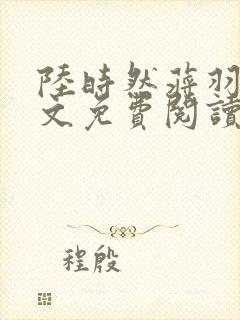 陸時然蒋羽
文免費閱讀
程殷